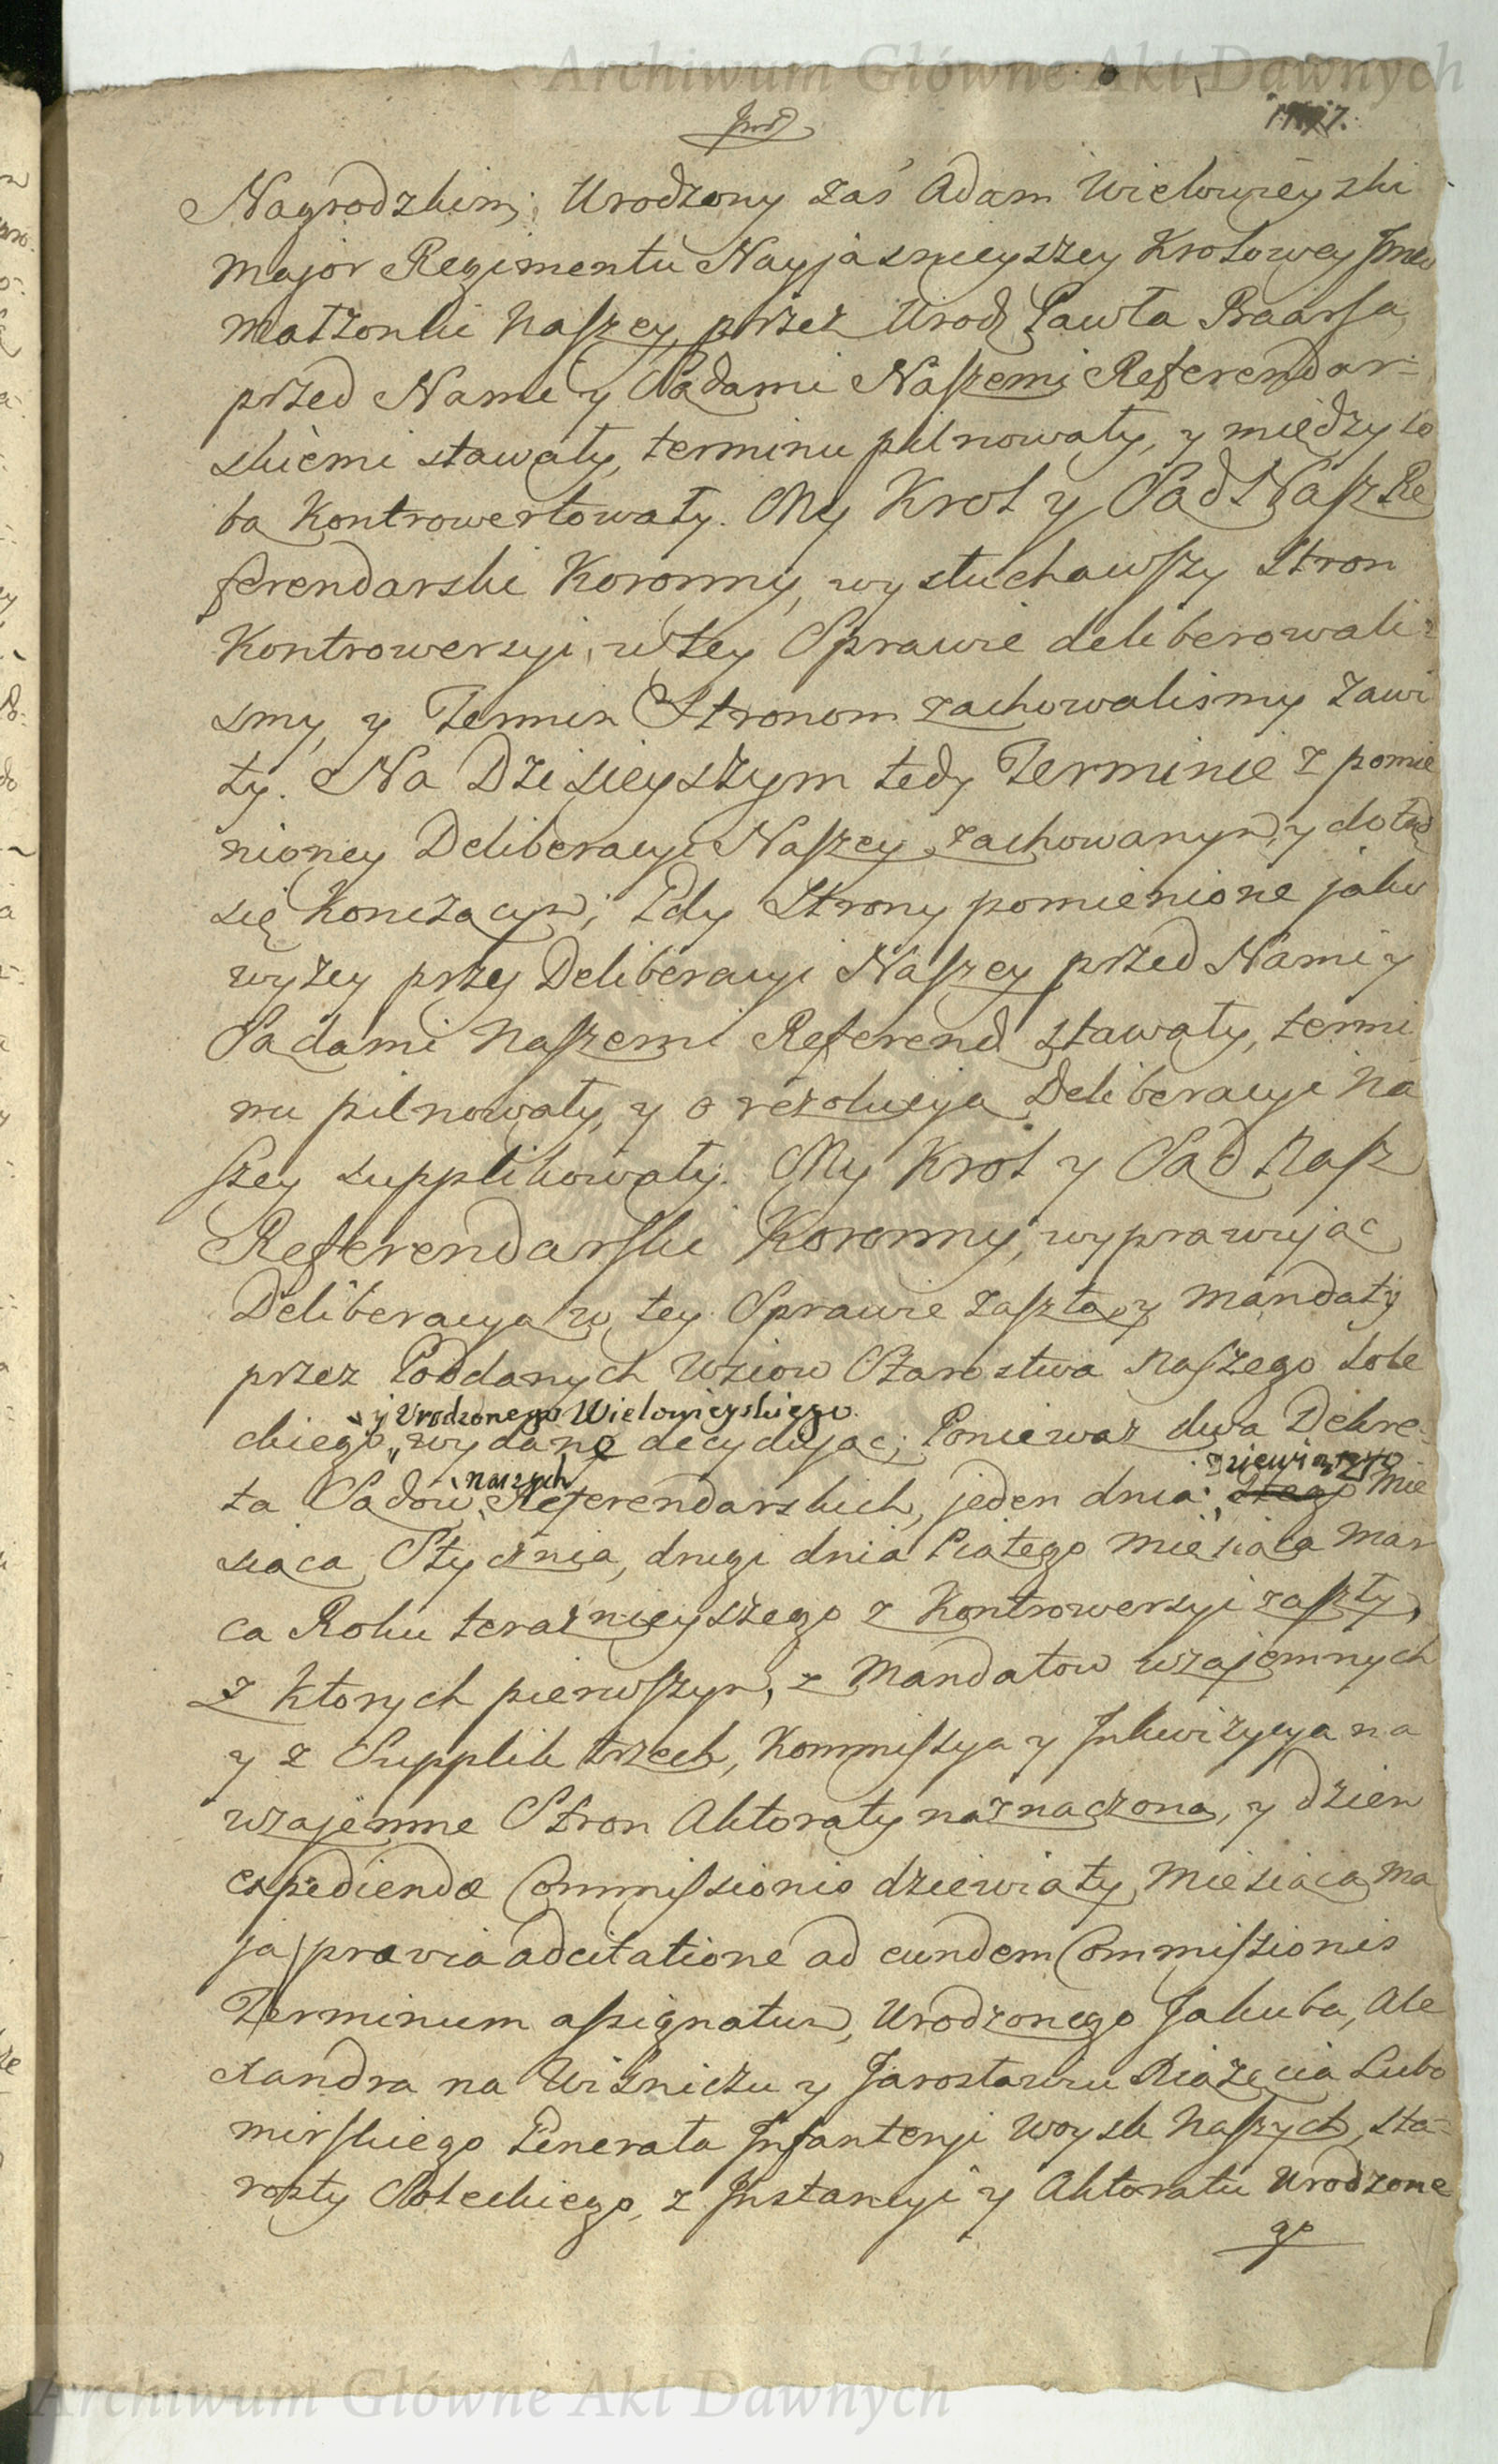 Archiwum Główne Akt Dawnych
Nagrodzkim; Urodzony zaś Adam Wielowieyski
Major Regimentu Nayjasnieyszey Krolowey Jmci
Małżonki Naszey, przez Urodz Pawła Baarsa,
przed Nami y Sądami Naszemi Referendar-
skiemi stawały, terminu pilnowały, y między so
bą Kontrowertowały. My Krol y Sąd Nasz Re
ferendarski Koronny, wysłuchawszy Stron
Kontrowersyi, w tey Sprawie deliberowali
smy, y Termin Stronom zachowalismy zawi
ty. Na Dzisieyszym tedy Terminie z pomie
nioney Deliberacyi Naszey zachowanym, y dotąd
się Kończącym; Gdy Strony pomienione jako
wyżey przy Deliberacyi Naszey przed Nami y
Sądami Naszemi Referend. stawały, termi
nu pilnowały, y o rezolucyą Deliberacyi Na
szey supplikowały. My Krol y Sąd Nasz
Referendarski Koronny, wyprawując
Deliberacyą w tey Sprawie zaszłą, y Mandaty
przez Poddanych Wsiow Starostwa Naszego Sole
y Urodzonego Wielowieyskiego
ckiego, wydane decydując; Ponieważ dwa Dekre-
Naszych dziewiątego
ta Sądow Referendarskich, jeden dnia Mie
siąca Stycznia, drugi dnia Piątego Miesiąca Mar
ca Roku teraznieyszego z Kontrowersyi zaszły,
z Ktorych pierwszym, z Mandatow wzajemnych
y z Supplik trzech, Kommissya y Inkwizycya na
wzajemne Stron Aktoraty naznaczona, y dzien
expediendæ Commissionis dziewiąty Miesiąca Ma
ja prævia adcitatione ad eundem Commissionis
Terminum assignatur, Urodzonego Jakuba, Ale
xandra na Wiśniczu y Jarosławiu Xiążęcia Lubo
mirskiego Generała Infanteryi Woysk Naszych, Sta-
rosty Soleckiego, z Instancyi y Aktoratu Urodzone
go
Archiwum Główne Akt Dawnych